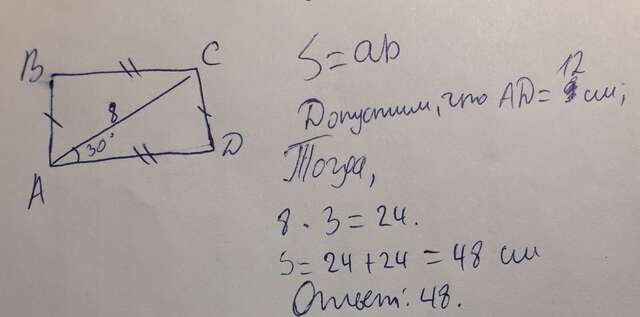 B
C
8
30°
A
D
S=ab
Допустим, что AD= 12 см;
Тогда,
8 · 3 = 24.
S= 24 + 24 = 48 см
Ответ: 48.